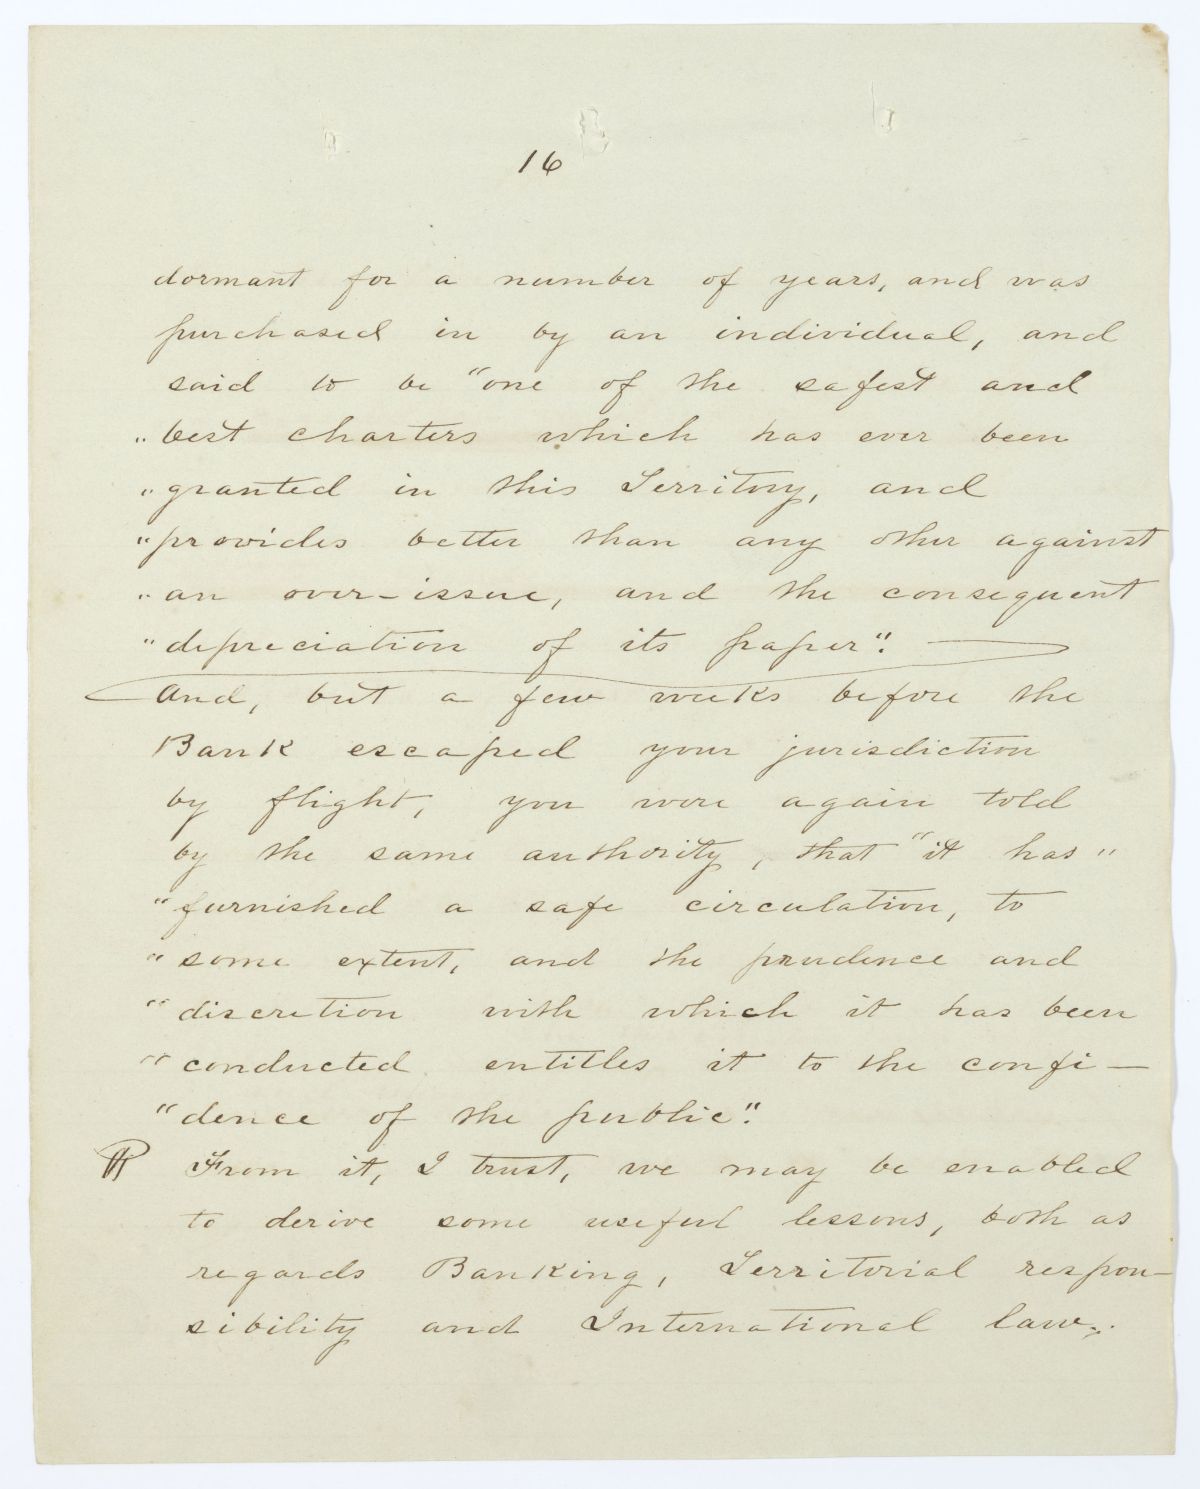 16
dormant for a number of years, and was
purchased in by an individual, and
said to be "one of the safest and
"best charters which has ever been
"granted in this Territory, and
"provides better than any other against
"an over-issue, and the consequent
"depreciation of its paper". —
And, but a few weeks before the
Bank escaped your jurisdiction
by flight, you were again told
by the same authority, that "it has"
"furnished a safe circulation, to
"some extent, and the prudence and
"discretion with which it has been
"conducted entitles it to the confi—
"dence of the public".
From it, I trust, we may be enabled
to derive some useful lessons, both as
regards Banking, Territorial respon—
sibility and International law.